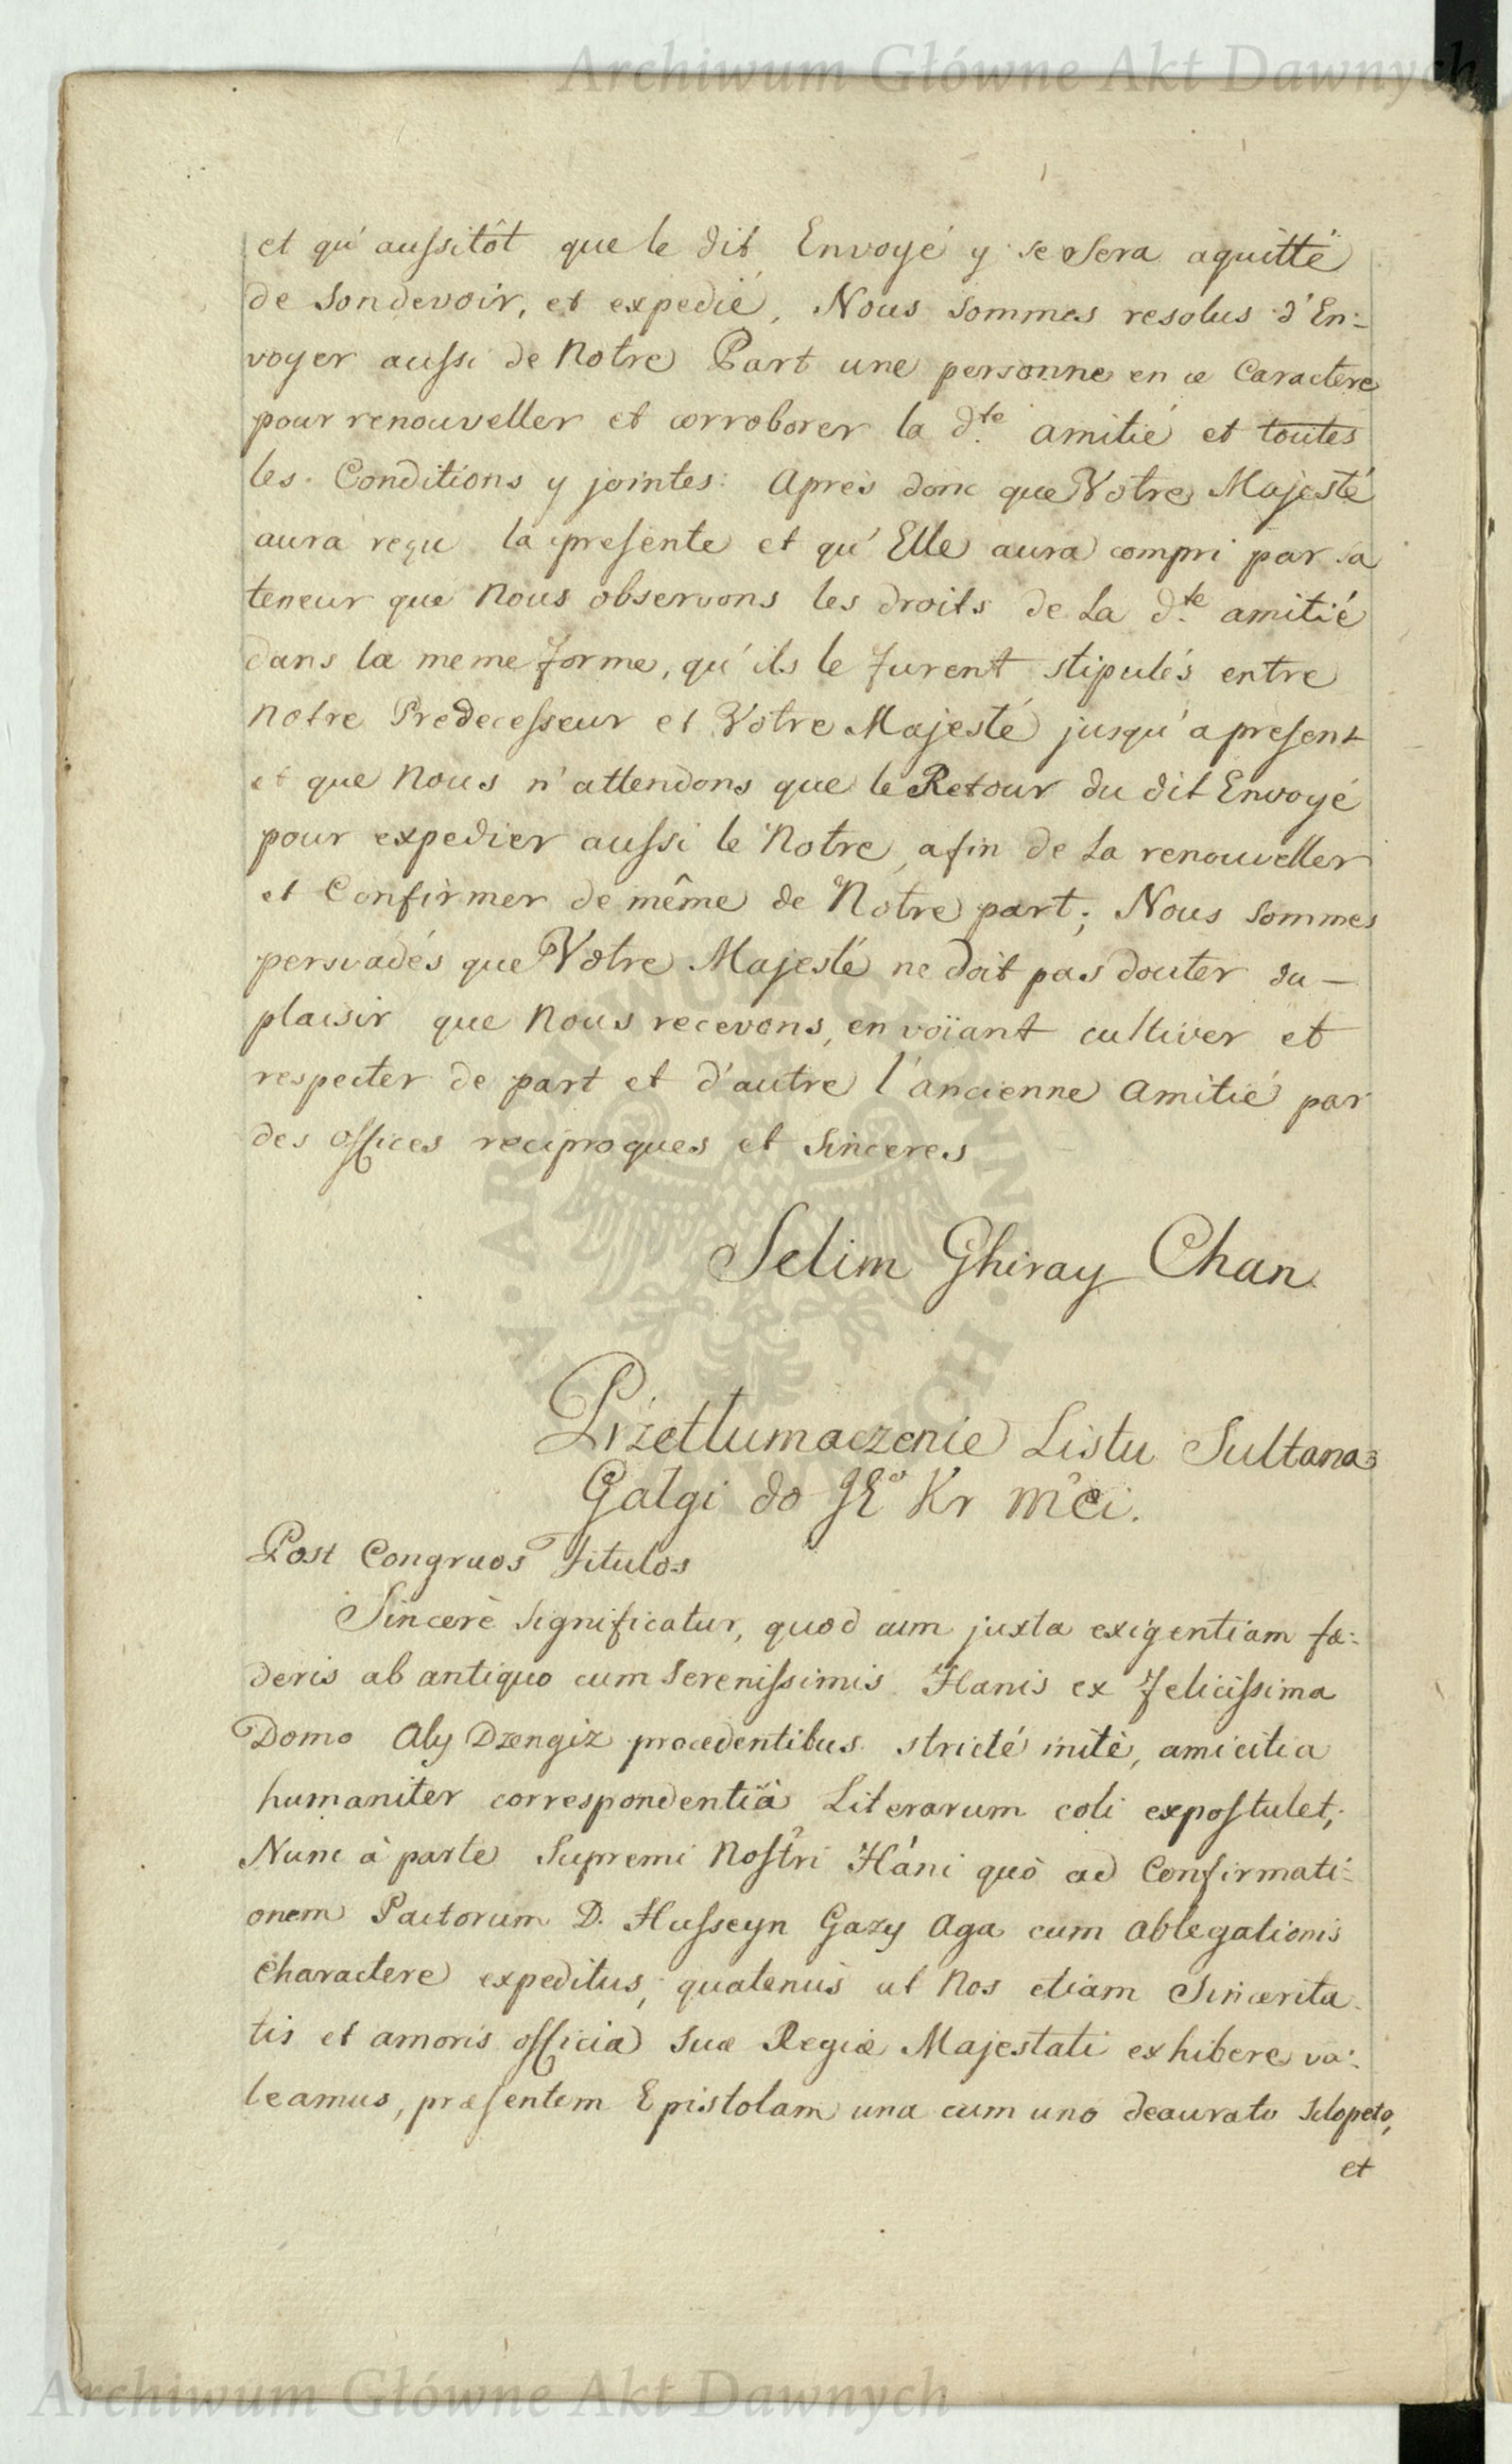 Archiwum Główne Akt Dawnych
et qu'aussitôt que le dit Envoyé y se sera aquitté
de son devoir, et expedié, Nous sommes resolus d'En-
voyer aussi de Notre Part une personne en ce Caractere
pour renouveller et corroborer la d.te amitié et toutes
les Conditions y jointes: Après donc que Votre Majesté
aura reçu la presente et qu'Elle aura compri par sa
teneur que Nous observons les droits de La d.te amitié
dans la meme forme, qu'ils le furent stipulés entre
Notre Predecesseur et Votre Majesté jusqu'a present
et que Nous n'attendons que le Retour du dit Envoyé
pour expedier aussi le Notre, afin de La renouveller
et Confirmer de même de Notre part; Nous sommes
persuadés que Votre Majesté ne doit pas douter du –
plaisir que Nous recevons, en voïant cultiver et
respecter de part et d'autre l'ancienne Amitié par
des offices reciproques et Sinceres
Selim Ghiray Chan.
Przetłumaczenie Listu Sultana
Gałgi do JEo Kr mći.
Post Congruos Titulos
Sincerè Significatur, quod cum juxta exigentiam fæ-
deris ab antiquo cum Serenissimis Hanis ex felicissima
Domo Aly Dzengiz procedentibus stricté initè, amicitia
humaniter correspondentiâ Literarum coli expostulet;
Nunc à parte Supremi Nostri Háni quò ad Confirmati-
onem Pactorum D. Husseyn Gazy Aga cum Ablegationis
Charactere expeditus, quatenus ut Nos etiam Sincerita-
tis et amoris officia Suæ Regiæ Majestati exhibere va-
leamus, præsentem Epistolam una cum uno deaurato Sclopeto,
et
Archiwum Główne Akt Dawnych